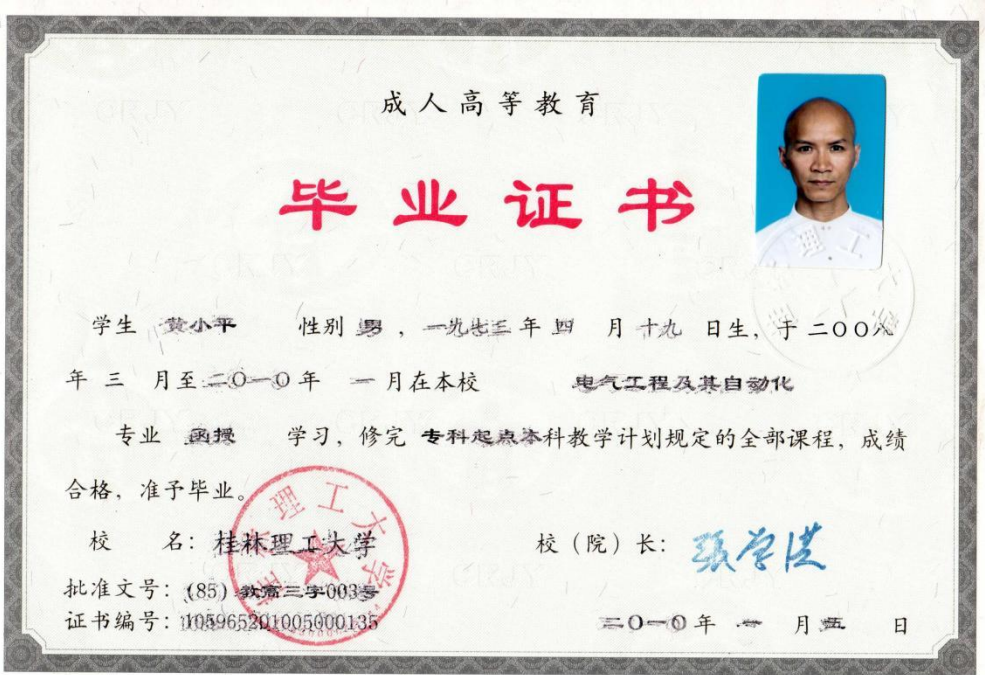 成人高等教育
毕业证书
学生 黄小平 性别 男 ，一九七三年 四 月 十九 日生，于二〇〇八
年 三 月至二〇一〇年 一 月在本校 电气工程及其自动化
专业 函授 学习，修完 专科起点本科教学计划规定的全部课程，成绩
合格，准予毕业。
校 名：桂林理工大学
校（院）长：张学洪
批准文号：(85) 教高三字003号
证书编号：105965201005000135
二〇一〇年 一 月 五 日